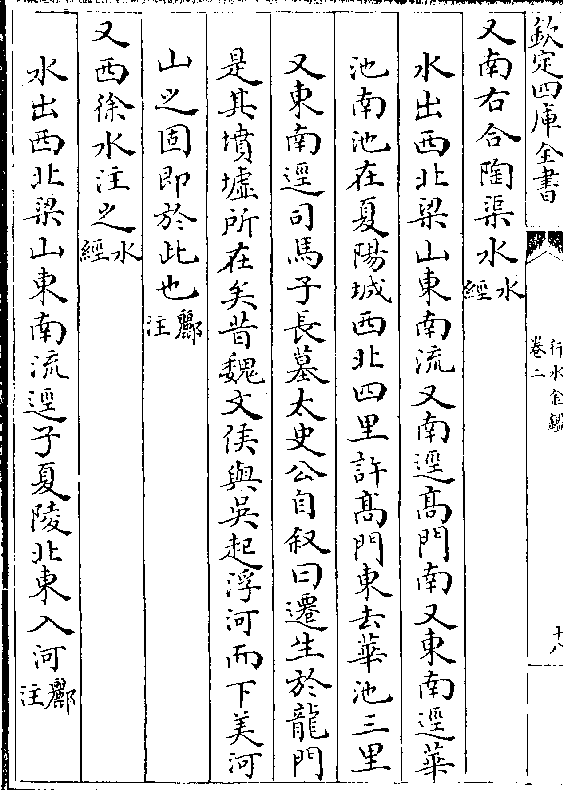 欽定四庫全書
行水金鑑
卷二
十八
又南右合陶渠水水經
水出西北梁山東南流又南逕髙門南又東南逕華
池南池在夏陽城西北四里許髙門東去華池三里
又東南逕司馬子長墓太史公自叙曰遷生於龍門
是其墳墟所在矣昔魏文侯與吳起浮河而下美河
山之固即於此也酈注
又西徐水注之水經
水出西北梁山東南流逕子夏陵北東入河酈注